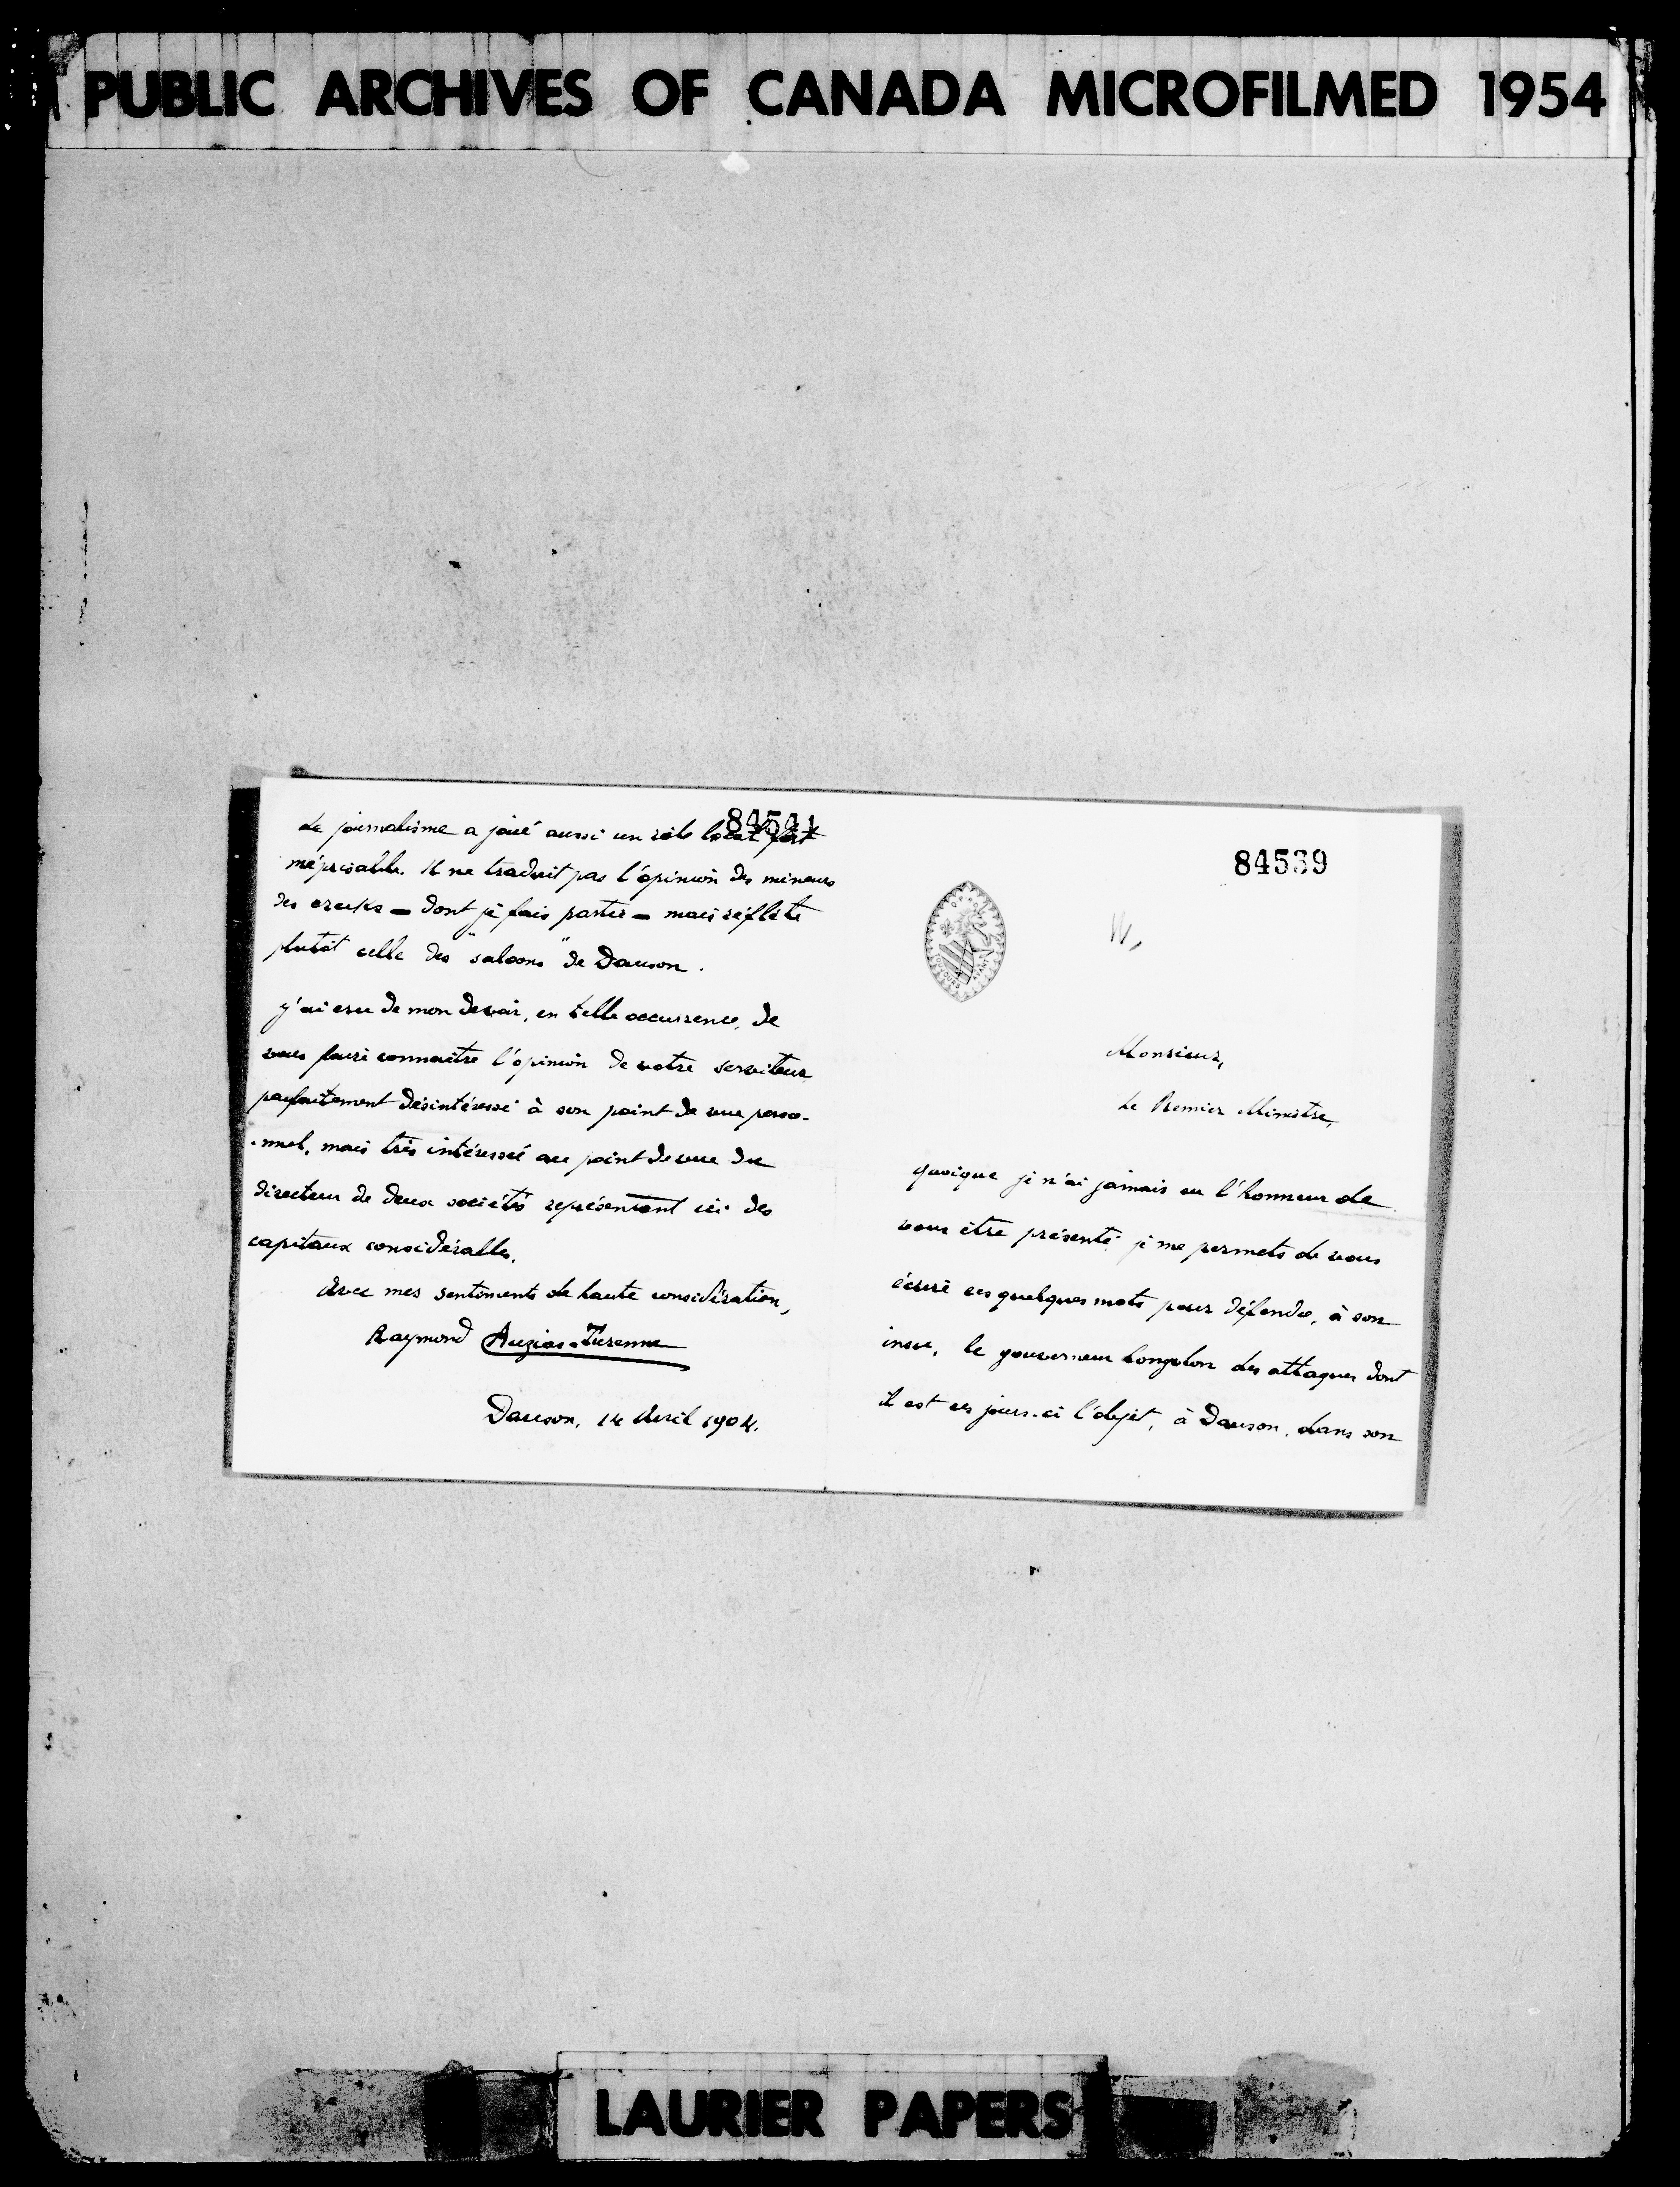 PUBLIC ARCHIVES OF CANADA MICROFILMED 1954
84541
Le journalisme a joué aussi un rôle local fort
méprisable. Il ne traduit pas l'opinion des mineurs
des creeks — dont je fais partie — mais reflète
plutôt celle des "saloons" de Dawson.
J'ai cru de mon devoir, en telle occurrence, de
vous faire connaître l'opinion de votre serviteur
parfaitement désintéressé à son point de vue perso-
-nnel, mais très intéressé au point de vue du
directeur de deux sociétés représentant ici des
capitaux considérables.
Avec mes sentiments de haute considération,
Raymond Auzias-Turenne
Dawson, 14 Avril 1904.
84539
TOUJOURS AVANT
Monsieur,
Le Premier Ministre,
quoique je n'ai jamais eu l'honneur de
vous être présenté, je me permets de vous
écrire ces quelques mots pour défendre, à son
insu, le gouverneur Congdon des attaques dont
il est ces jours-ci l'objet, à Dawson, dans son
LAURIER PAPERS